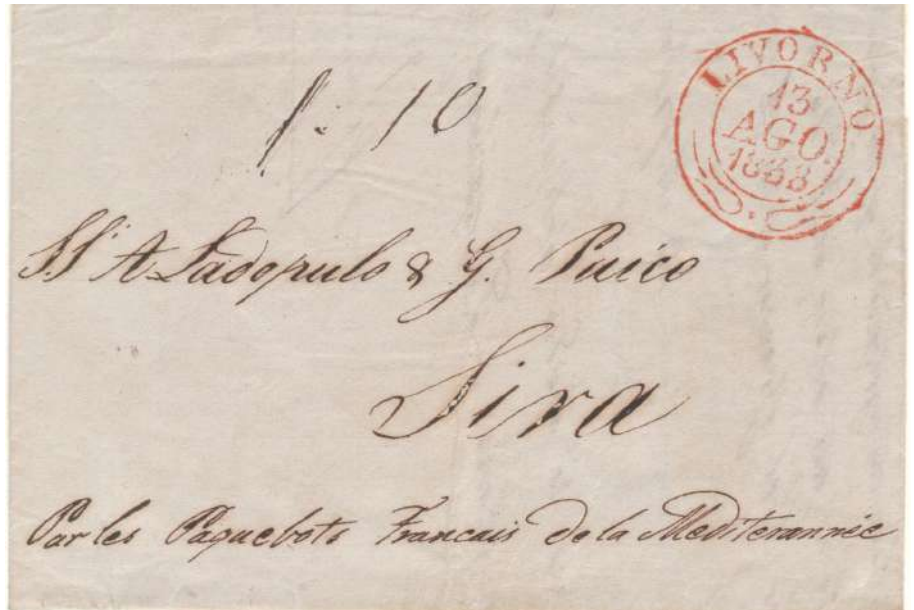 LIVORNO
13
AGO.
1838
10
A. Ladopulo & G.
Sira
Par les Paquebots Francais de la Mediterannée